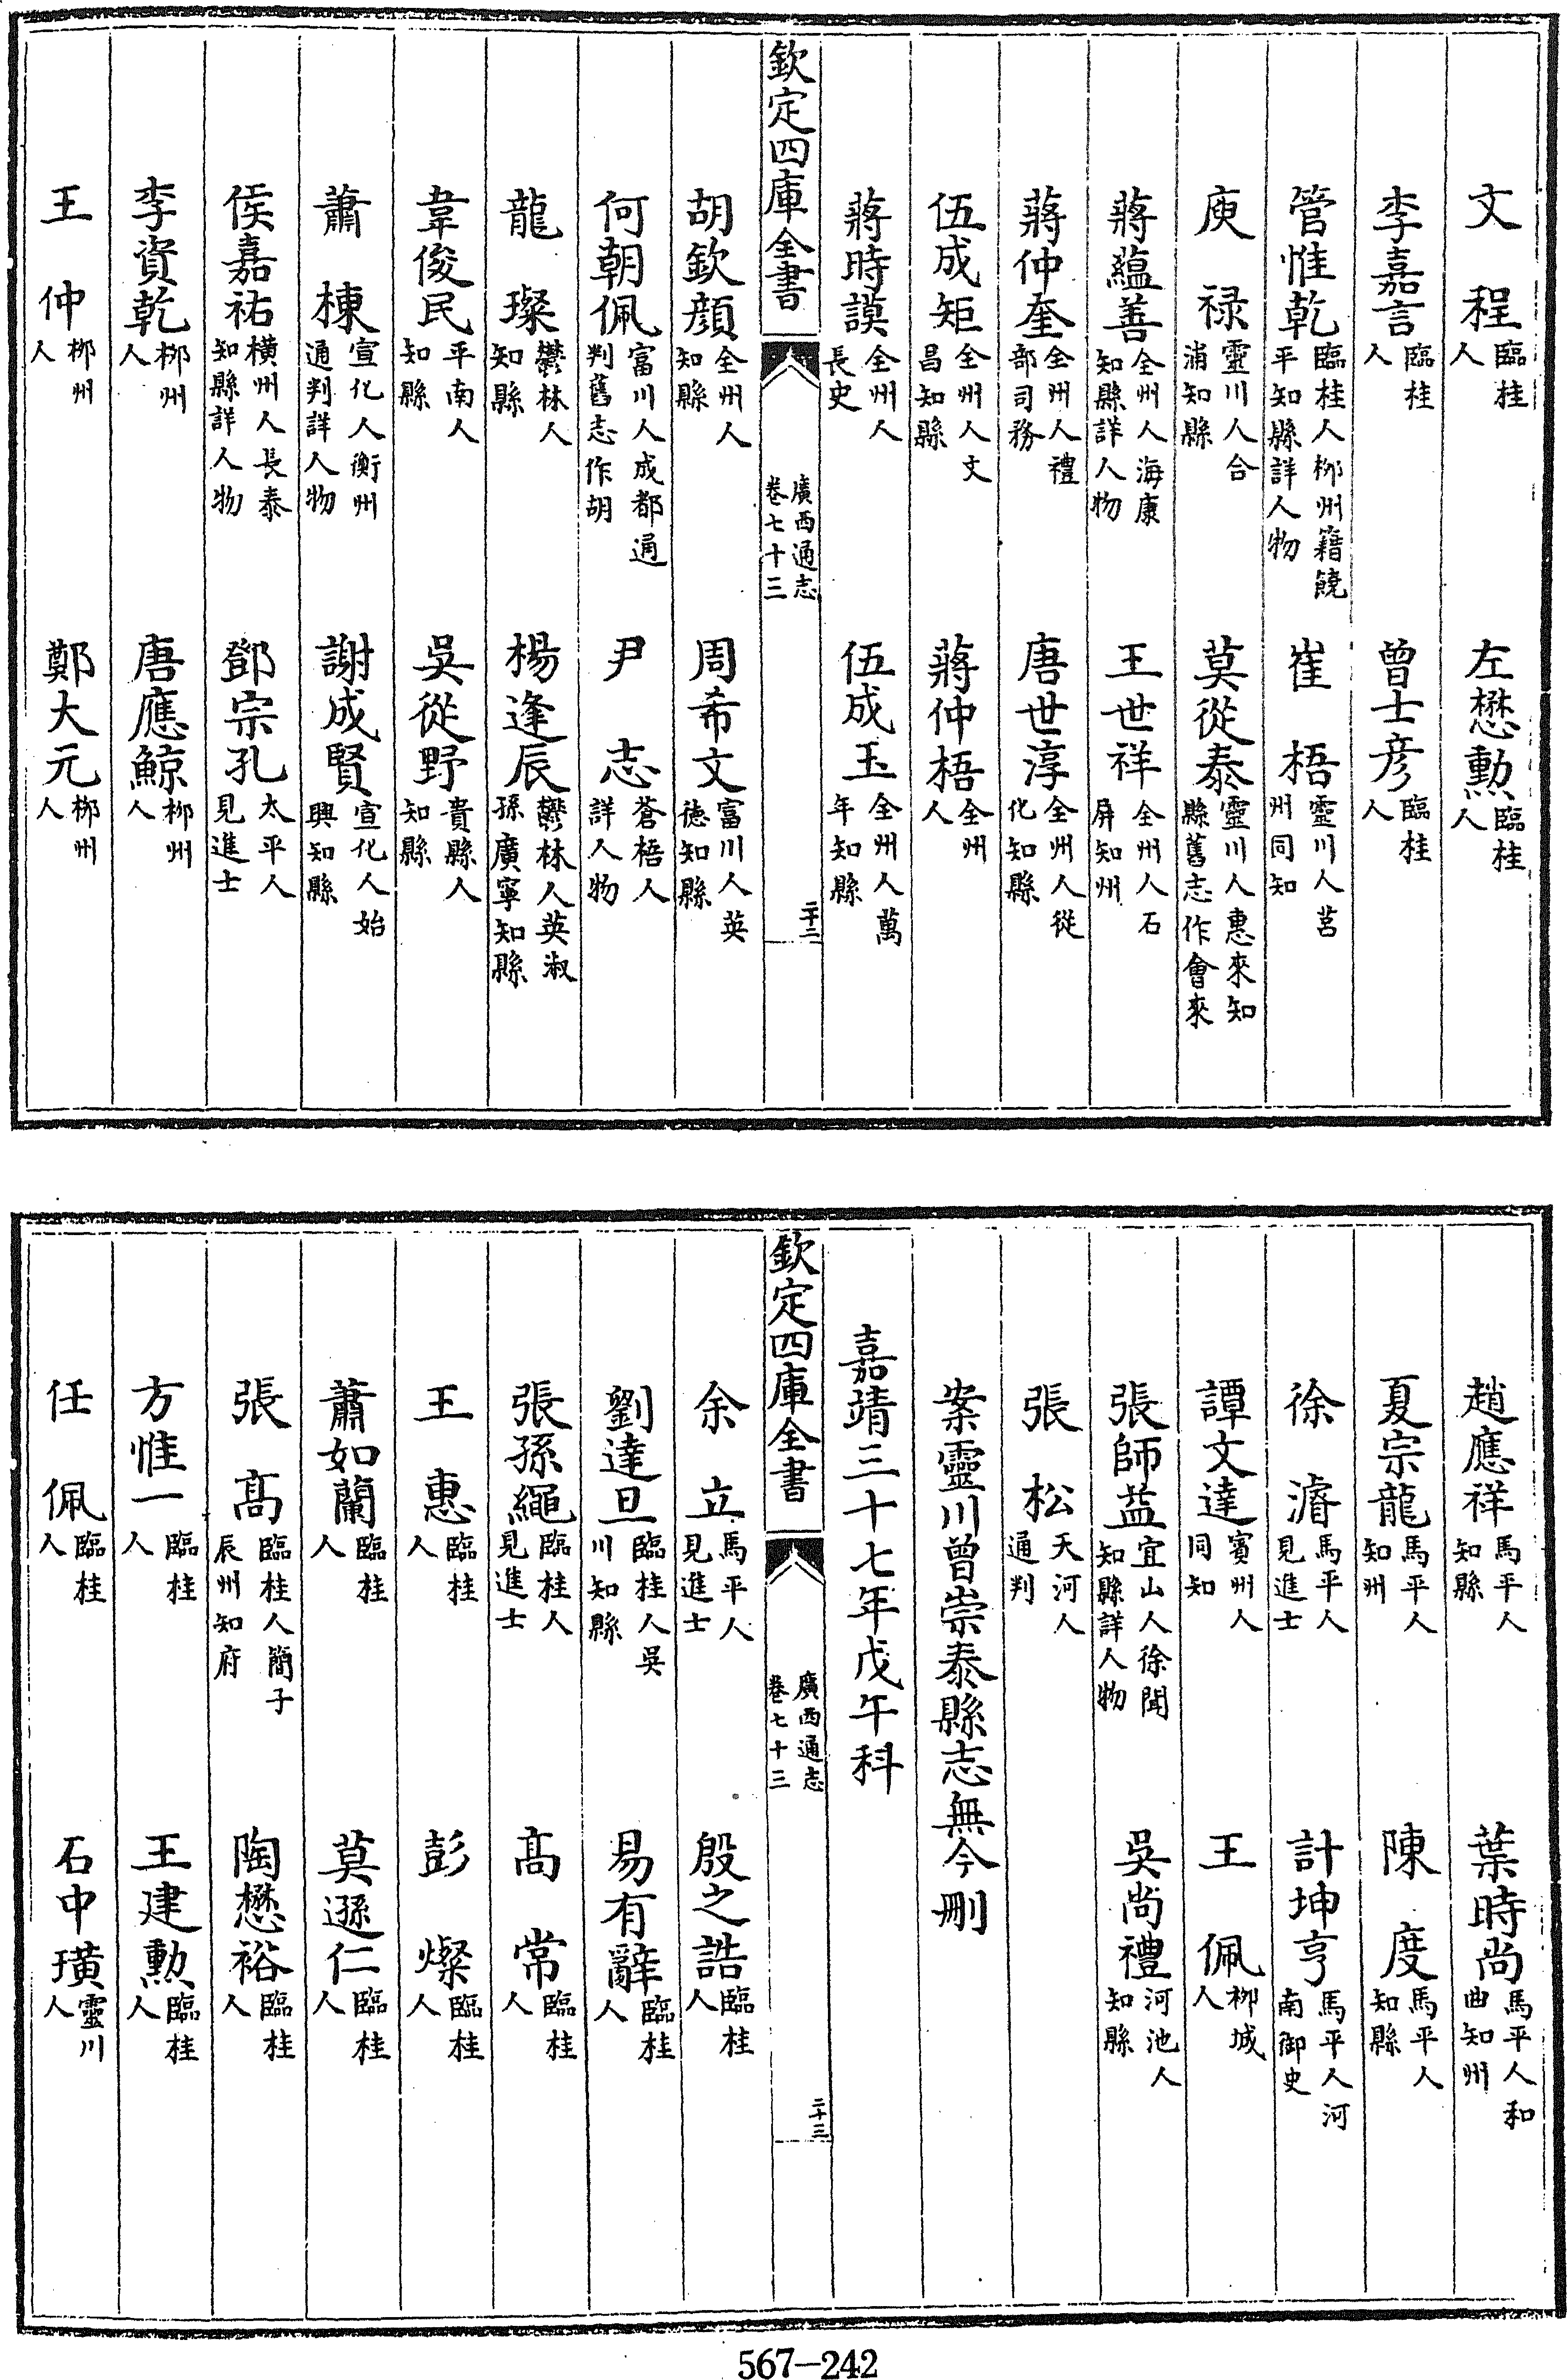 文程臨桂人 左懋勲臨桂人
李嘉言臨桂人 曾士彦臨桂人
管惟乾臨桂人栁州籍饒平知縣詳人物 崔梧靈川人莒州同知
庾禄靈川人合浦知縣 莫從泰靈川人惠來知縣舊志作會來
蔣蘊善全州人海康知縣詳人物 王世祥全州人石屏知州
蔣仲奎全州人禮部司務 唐世淳全州人從化知縣
伍成矩全州人文昌知縣 蔣仲梧全州人
蔣時謨全州人長史 伍成玉全州人萬年知縣
欽定四庫全書 廣西通志卷七十三 二十二
胡欽顔全州人知縣 周希文富川人英德知縣
何朝佩富川人成都通判舊志作胡 尹志蒼梧人詳人物
龍璨鬱林人知縣 楊逢辰鬱林人英淑孫廣寧知縣
韋俊民平南人知縣 吳從野貴縣人知縣
蕭棟宣化人衡州通判詳人物 謝成賢宣化人始興知縣
侯嘉祐橫州人長泰知縣詳人物 鄧宗孔太平人見進士
李資乾栁州人 唐應鯨栁州人
王仲栁州人 鄭大元栁州人
趙應祥馬平人知縣 葉時尚馬平人和曲知州
夏宗龍馬平人知州 陳度馬平人知縣
徐濬馬平人見進士 計坤亨馬平人河南御史
譚文達賓州人同知 王佩栁城人
張師益宜山人徐聞知縣詳人物 吳尚禮河池人知縣
張松天河人通判
案靈川曾崇泰縣志無今刪
嘉靖三十七年戊午科
欽定四庫全書 廣西通志卷七十三 二十三
余立馬平人見進士 殷之誥臨桂人
劉達旦臨桂人吳川知縣 易有辭臨桂人
張孫繩臨桂人見進士 高常臨桂人
王惠臨桂人 彭燦臨桂人
蕭如蘭臨桂人 莫遜仁臨桂人
張高臨桂人簡子辰州知府 陶懋裕臨桂人
方惟一臨桂人 王建勲臨桂人
任佩臨桂人 石中璜靈川人
567-242